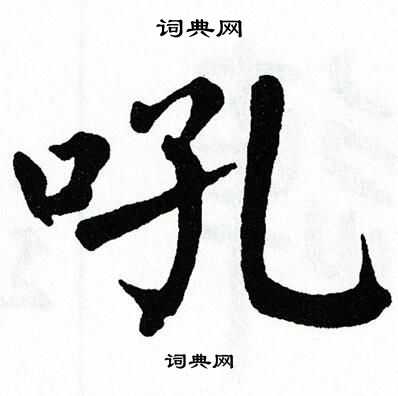 词典网
吼
词典网